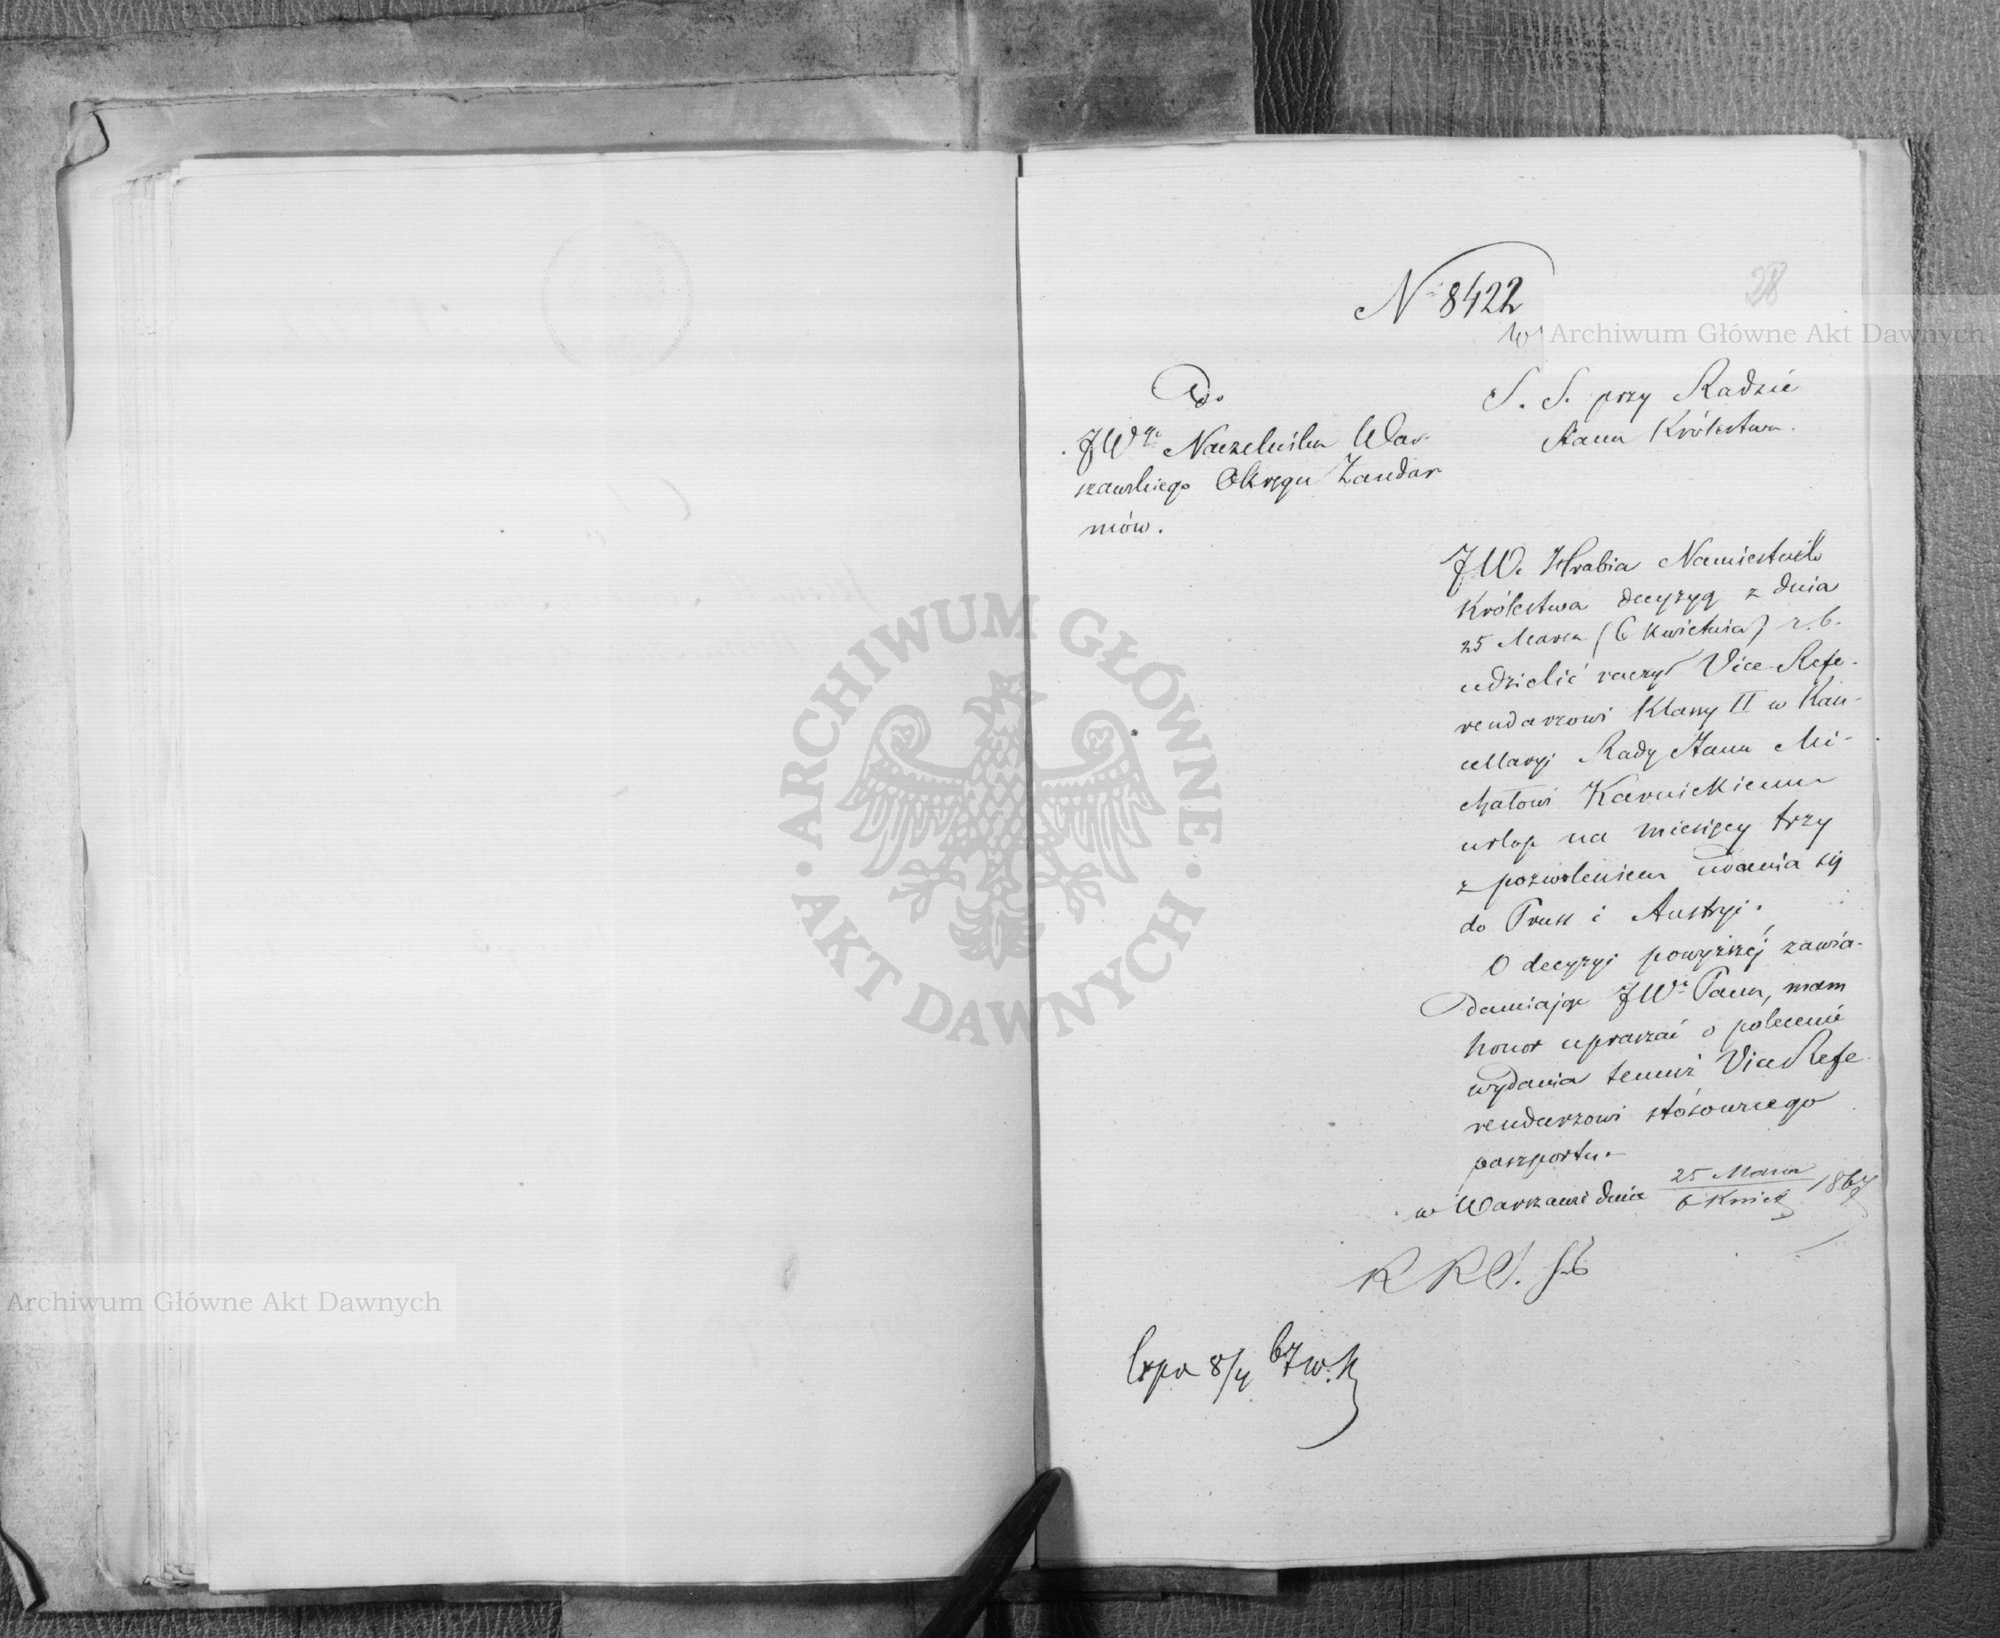 28
N 8422
w
S. S. przy Radzie
Stanu Królestwa.
Do
JWgo Naczelnika War-
szawskiego Okręgu Żandar
mów.
JW. Hrabia Namiestnik
Królestwa decyzyą z dnia
25 Marca (6 Kwietnia) r. b.
udzielić raczył Vice-Refe-
rendarzowi Klassy II w Kan-
cellaryi Rady Stanu Mi-
chałowi Karnickiemu
urlop na miesięcy trzy
z pozwoleniem udania się
do Pruss i Austryi.
O decyzyi powyższej zawia-
damiając JWo Pana, mam
honor upraszać o polecenie
wydania temuż Vice Refe
rendarzowi stósownego
paszportu.
w Warszawie dnia 25 Marca 1867
6 Kwiet
R R S.
Exp 8/4 67 w. K
Archiwum Główne Akt Dawnych
Archiwum Główne Akt Dawnych
ARCHIWUM GŁÓWNE · AKT DAWNYCH ·